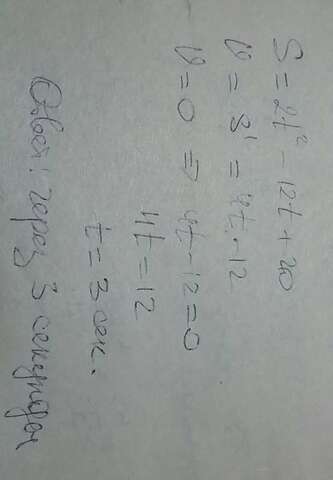 S = 2t² - 12t + 20
v = S' = 4t - 12
v = 0 ⇒ 4t - 12 = 0
4t = 12
t = 3 сек.
Ответ: через 3 секунды